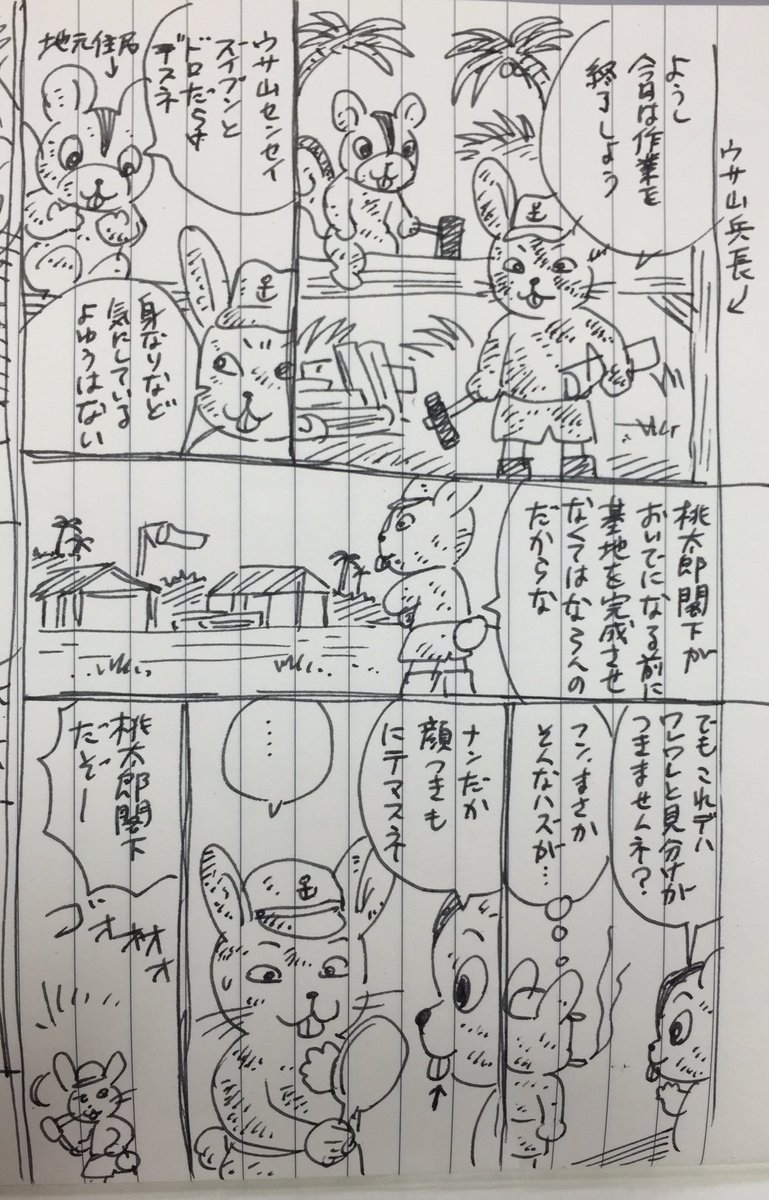 ウサ山兵長
ようし
今日は作業を
終了しよう
地元住民
ウサ山センセイ
ズイブンと
ドロだらけ
デスネ
身なりなど
気にしている
よゆうはない
桃太郎閣下が
おいでになる前に
基地を完成させ
なくてはならんの
だからな
でもこれデハ
ワレワレと見分けが
つきませんネ?
フン、まさか
そんなハズが…
ナンだか
顔つきも
ニテマスネ
……
桃太郎閣下
だぞー
ゴオオオオ